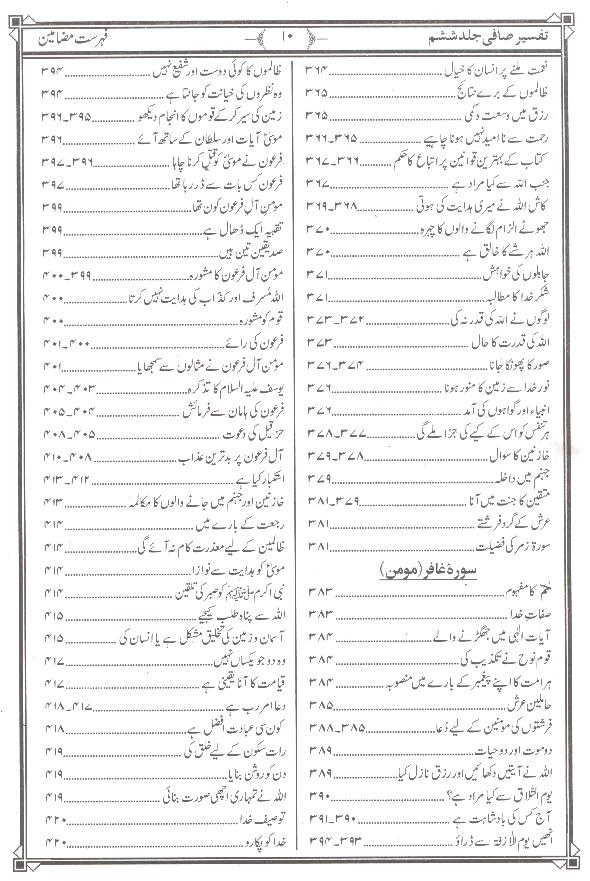 تفسیر صافی جلد ششم
﴿۱۰﴾
فہرست مضامین
نعمت ملنے پر انسان کا خیال ۳۶۴
ظالموں کے برے نتائج ۳۶۵
رزق میں وسعت و کمی ۳۶۵
رحمت سے ناامید نہیں ہونا چاہیے ۳۶۵۔۳۶۶
کتاب کے بہترین قوانین پر اتباع کا حکم ۳۶۶۔۳۶۷
جنب اللہ سے کیا مراد ہے ۳۶۷
کاش اللہ نے میری ہدایت کی ہوتی ۳۶۸۔۳۶۹
جھوٹے الزام لگانے والوں کا چہرہ ۳۷۰
اللہ ہر شے کا خالق ہے ۳۷۰
جاہلوں کی خواہش ۳۷۱
شکر خدا کا مطالبہ ۳۷۱
لوگوں نے اللہ کی قدر نہ کی ۳۷۲۔۳۷۳
اللہ کی قدرت کا حال ۳۷۳
صور کا پھونکا جانا ۳۷۴۔۳۷۶
نور خدا سے زمین کا منور ہونا ۳۷۶
انبیاء اور گواہوں کی آمد ۳۷۶
ہر نفس کو اس کے کیے کی جزا ملے گی ۳۷۷۔۳۷۸
خازنین کا سوال ۳۷۸۔۳۷۹
جہنم میں داخلہ ۳۷۹
متقین کا جنت میں آنا ۳۷۹۔۳۸۱
عرش کے گرد فرشتے ۳۸۱
سورۂ زمر کی فضیلت ۳۸۱
سورۂ غافر (مومن)
حٰمٓ کا مفہوم ۳۸۳
صفاتِ خدا ۳۸۳
آیات الٰہی میں جھگڑنے والے ۳۸۴
قوم نوح نے تکذیب کی ۳۸۴
ہر امت کا اپنے پیغمبر کے بارے میں منصوبہ ۳۸۴
حاملین عرش ۳۸۵
فرشتوں کی مومنین کے لیے دُعا ۳۸۵۔۳۸۸
دو موت اور دو حیات ۳۸۹
اللہ نے آیتیں دکھائیں اور رزق نازل کیا ۳۸۹
یوم التلاق سے کیا مراد ہے؟ ۳۹۰
آج کس کی بادشاہت ہے ۳۹۰۔۳۹۱
انھیں یوم الازفۃ سے ڈراؤ ۳۹۳۔۳۹۴
ظالموں کا کوئی دوست اور شفیع نہیں ۳۹۴
وہ نظروں کی خیانت کو جانتا ہے ۳۹۴
زمین کی سیر کر کے قوموں کا انجام دیکھو ۳۹۵۔۳۹۶
موسیٰؑ آیات اور سلطان کے ساتھ آئے ۳۹۶
فرعون نے موسیٰؑ کو قتل کرنا چاہا ۳۹۶۔۳۹۷
فرعون کس بات سے ڈر رہا تھا ۳۹۷
مومن آل فرعون کون تھا ۳۹۹
تقیہ ایک ڈھال ہے ۳۹۹
صدیقین تین ہیں ۳۹۹
مومن آل فرعون کا مشورہ ۳۹۹۔۴۰۰
اللہ مُسرف اور کذاب کی ہدایت نہیں کرتا ۴۰۰
قوم کو مشورہ ۴۰۰
فرعون کی رائے ۴۰۰۔۴۰۱
مومن آل فرعون نے مثالوں سے سمجھایا ۴۰۱
یوسف علیہ السلام کا تذکرہ ۴۰۳۔۴۰۴
فرعون کی ہامان سے فرمائش ۴۰۴۔۴۰۵
حزقیل کی دعوت ۴۰۵۔۴۰۸
آل فرعون پر بدترین عذاب ۴۰۸۔۴۱۰
استکبار کیا ہے ۴۱۲۔۴۱۳
خازنین اور جہنم میں جانے والوں کا مکالمہ ۴۱۳
رجعت کے بارے میں ۴۱۴
ظالمین کے لیے معذرت کام نہ آئے گی ۴۱۴
موسیٰؑ کو ہدایت سے نوازا ۴۱۴
نبی اکرم ﷺ کو صبر کی تلقین ۴۱۴
اللہ سے پناہ طلب کیجیے ۴۱۵
آسمان و زمین کی تخلیق مشکل ہے یا انسان کی ۴۱۵
وہ دو جو یکساں نہیں ۴۱۷
قیامت کا آنا یقینی ہے ۴۱۷
دعا امر رب ہے ۴۱۷۔۴۱۸
کون سی عبادت افضل ہے ۴۱۸
رات سکون کے لیے خلق کی ۴۱۹
دن کو روشن بنایا ۴۱۹
اللہ نے تمہاری اچھی صورت بنائی ۴۱۹
توصیف خدا ۴۲۰
خدا کو پکارو ۴۲۰